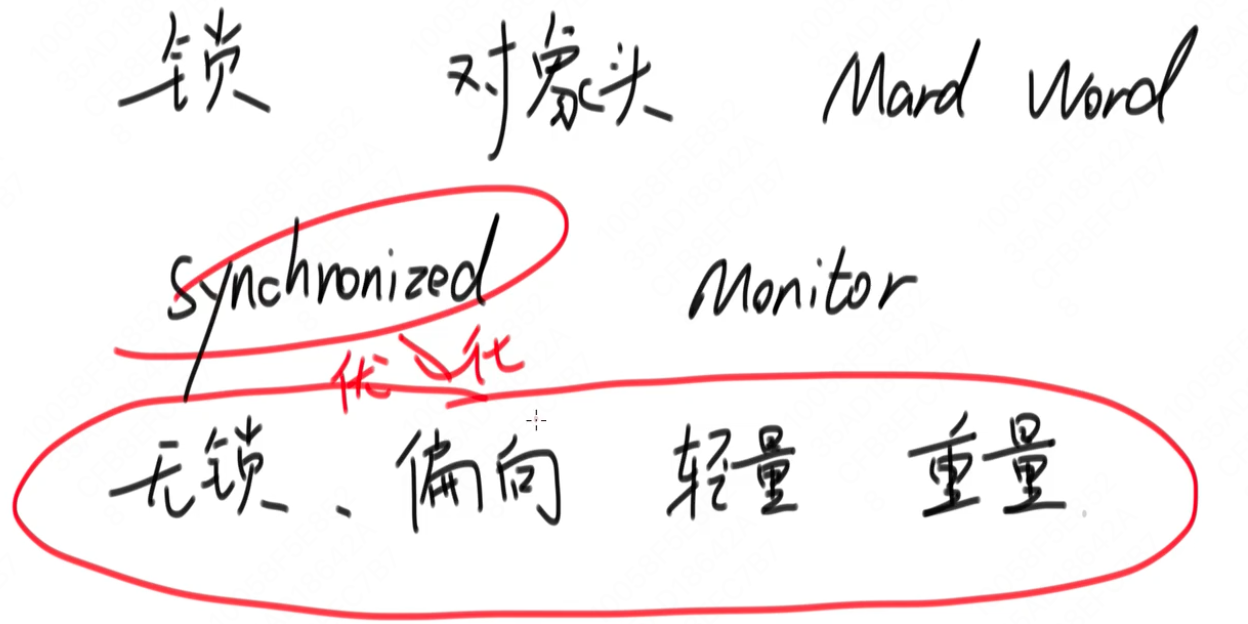 锁 对象头 Mard Word
synchronized Monitor
优化
无锁、偏向 轻量 重量